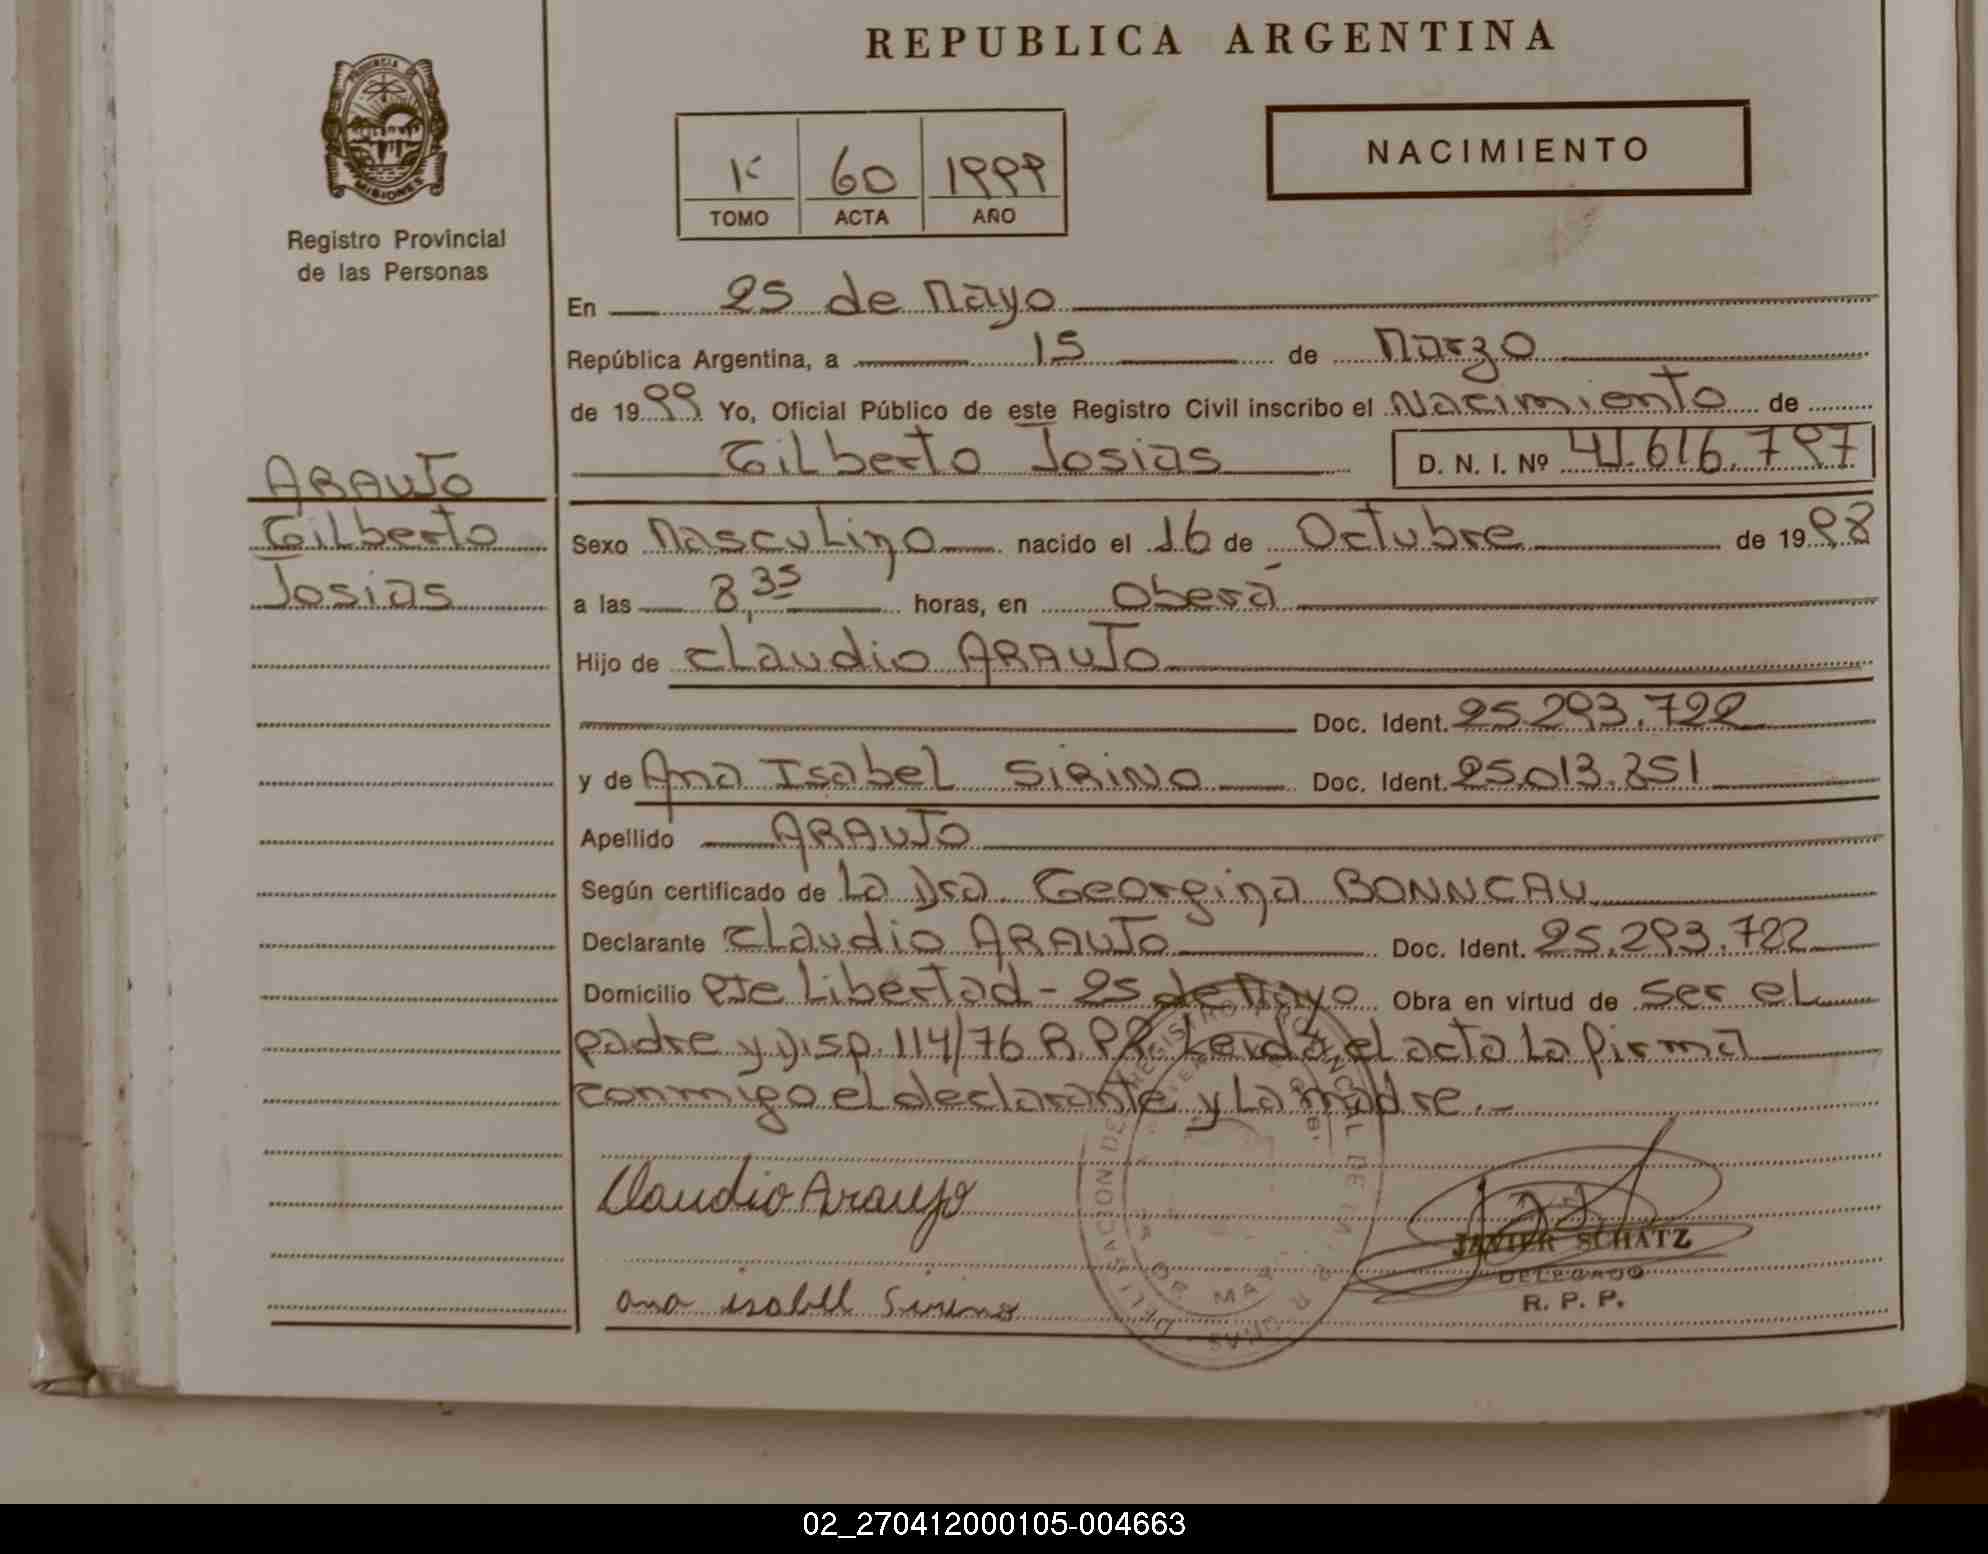 REPUBLICA ARGENTINA
PROVINCIA DE
MISIONES
Registro Provincial
de las Personas
NACIMIENTO
60 1999
TOMO ACTA AÑO
En 25 de Mayo
República Argentina, a 15 de Marzo
de 1999 Yo, Oficial Público de este Registro Civil inscribo el Nacimiento de
Gilberto Josias D. N. I. Nº 41.616.797
ARAUJO
Gilberto
Josias
Sexo Masculino nacido el 16 de Octubre de 1998
a las 8,35 horas, en Oberá
Hijo de Claudio ARAUJO
Doc. Ident. 25.293.722
y de Ana Isabel SIRINO Doc. Ident. 25.013.851
Apellido ARAUJO
Según certificado de La Dra. Georgina BONNEAU
Declarante Claudio ARAUJO Doc. Ident. 25.293.722
Domicilio Pje Libertad - 25 de Mayo Obra en virtud de ser el
padre y Disp. 114/76 R.P.P. Leida el acta La firma
conmigo el declarante y La madre.-
Claudio Araujo
ana isabel Sirino
JAVIER SCHATZ
DELEGADO
R. P. P.
02_270412000105-004663